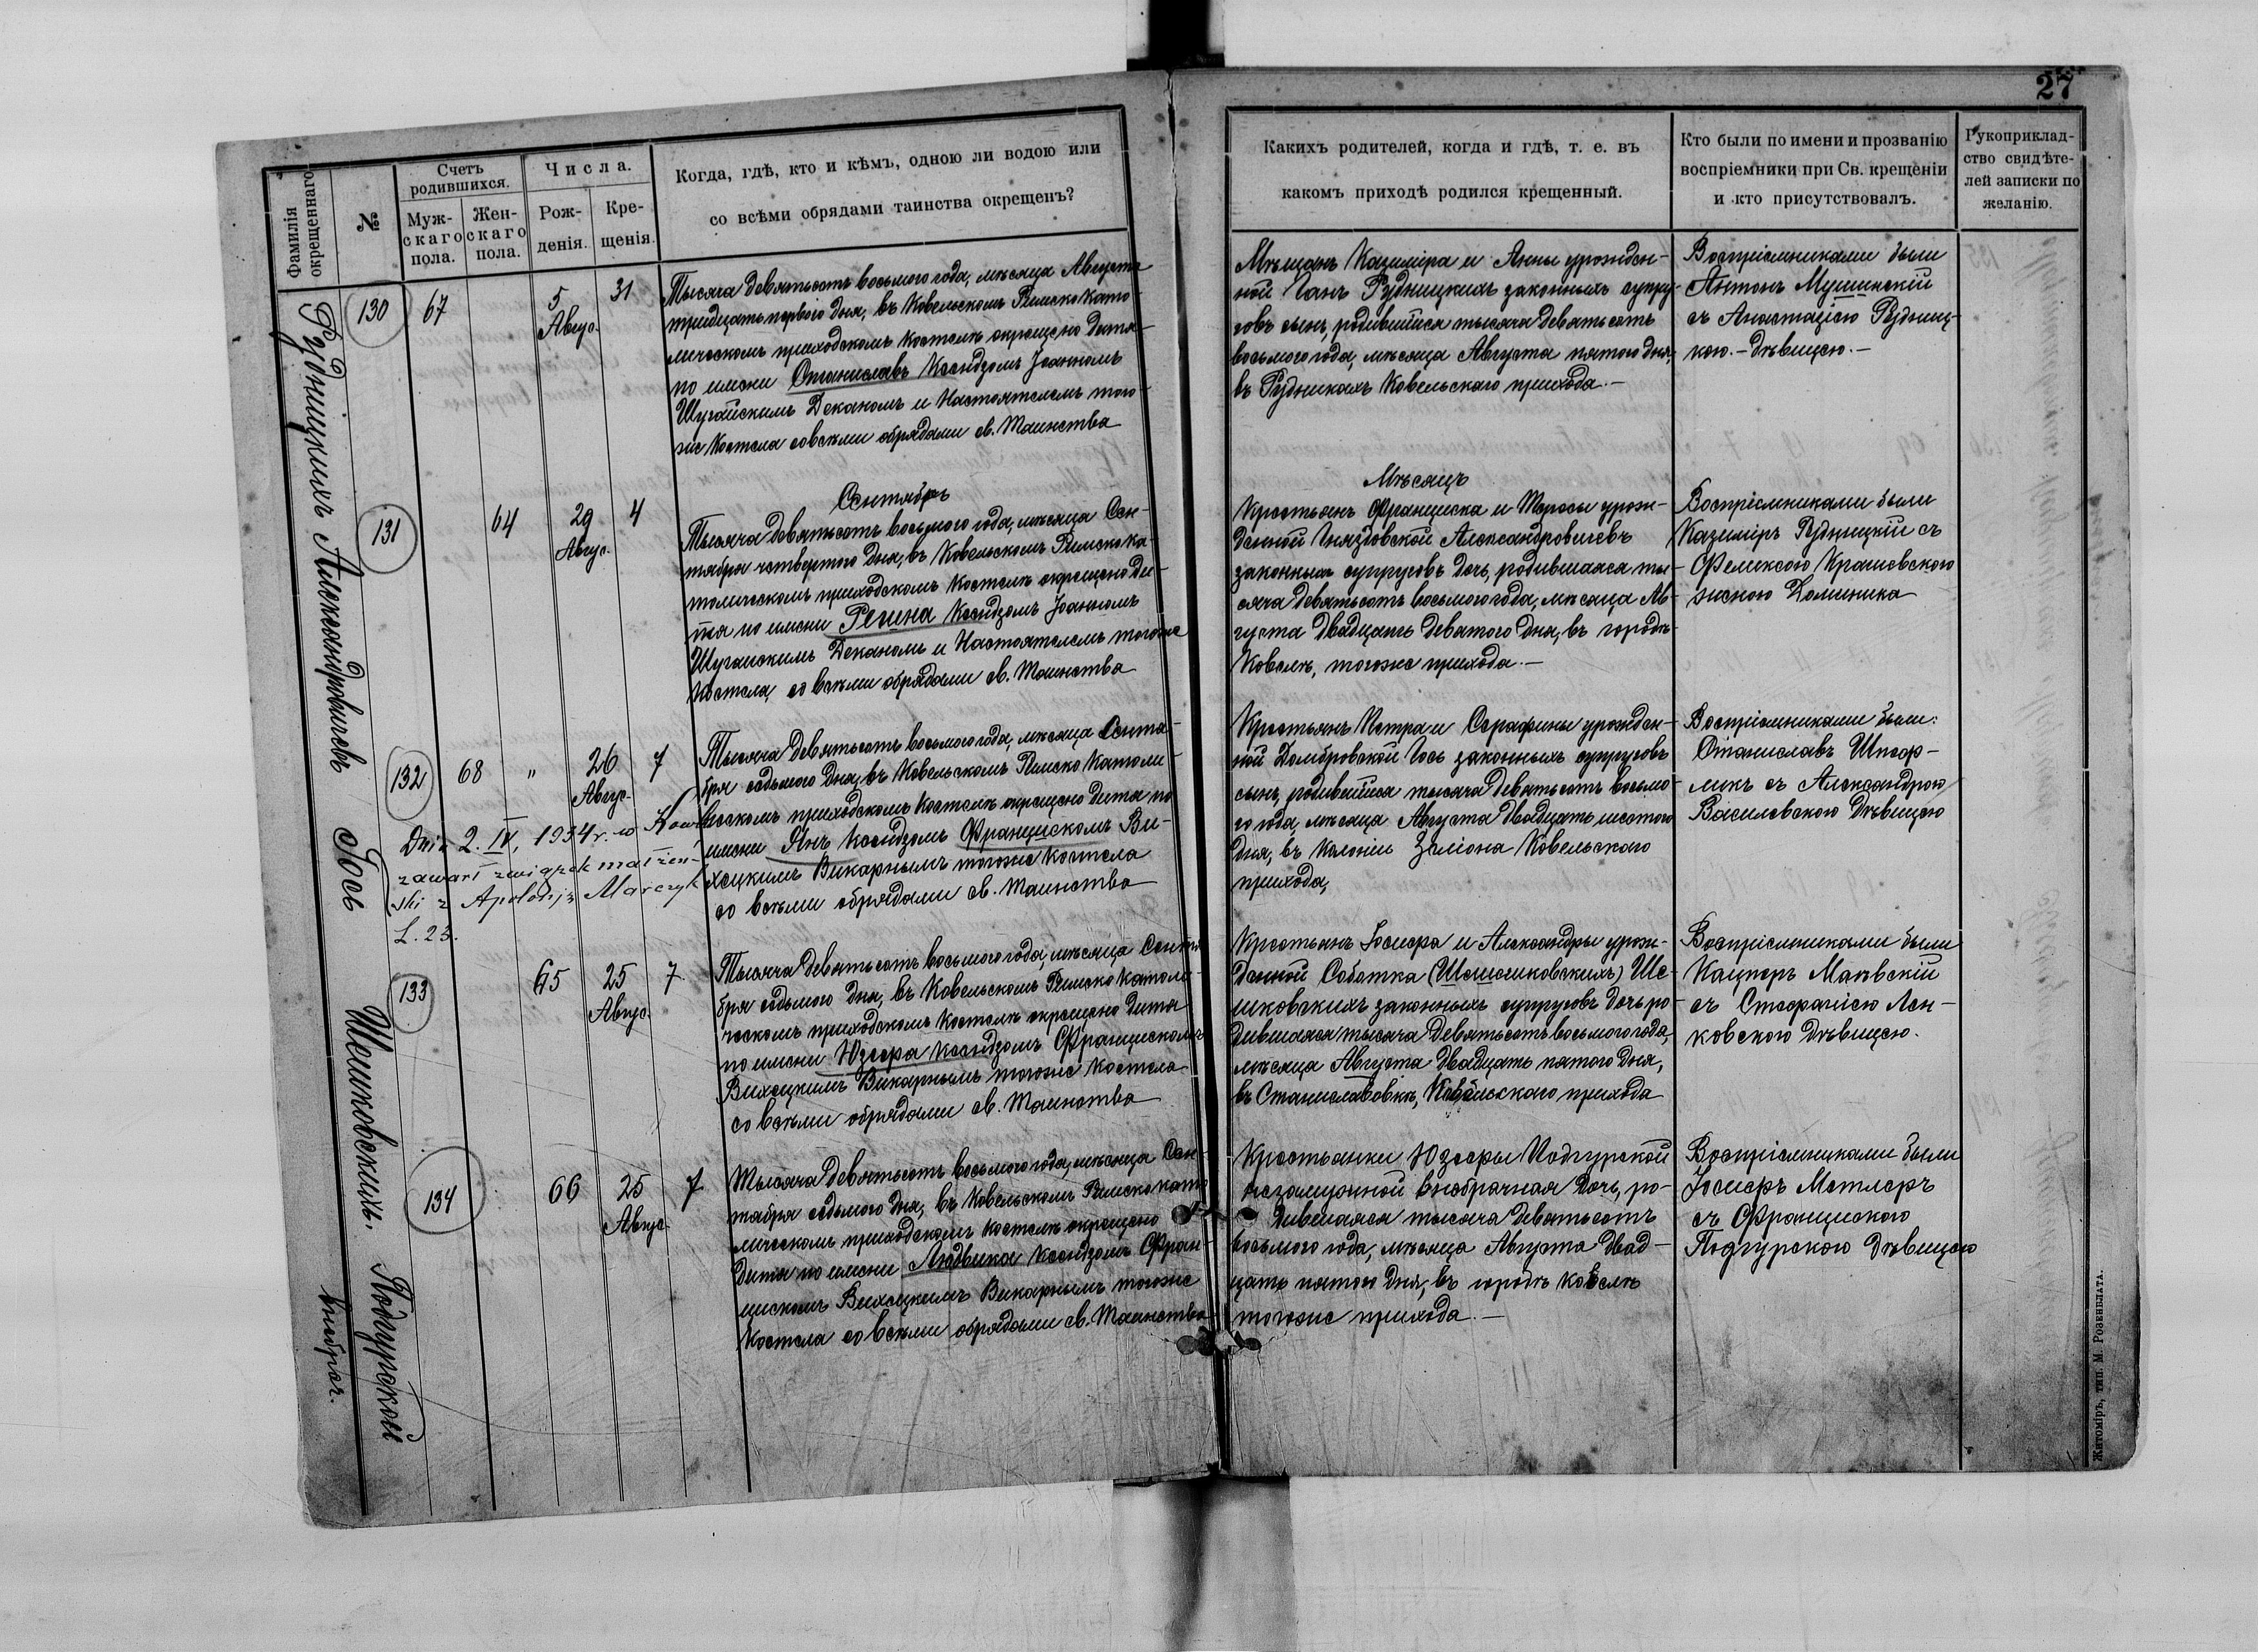 27
Фамилія окрещеннаго
№
Счетъ родившихся.
Муж-
скаго
пола.
Жен-
скаго
пола.
Числа.
Рож-
денія.
Кре-
щенія.
Когда, гдѣ, кто и кѣмъ, одною ли водою или
со всѣми обрядами таинства окрещенъ?
Какихъ родителей, когда и гдѣ, т. е. въ
какомъ приходѣ родился крещенный.
Кто были по имени и прозванію
воспріемники при Св. крещеніи
и кто присутствовалъ.
Рукоприклад-
ство свидѣте-
лей записки по
желанію.
Рудницкихъ
130
67
5
Авгус.
31
Тысяча девятьсотъ восьмого года, мѣсяца Августа
тридцать первого дня, въ Ковельскомъ Римско Като-
лическомъ приходскомъ костелѣ окрещено дитя
по имени Станиславъ Ксендзомъ Іоанномъ
Шугайскимъ Деканомъ и Настоятелемъ того-
же Костела совсѣми обрядами св. Таинства
Мѣщанъ Казиміра и Анны урожден-
ной Ганъ Рудницкихъ законныхъ супру-
говъ сынъ, родившійся тысяча девятьсотъ
восьмого года, мѣсяца Августа пятого дня,
въ Рудникахъ Ковельскаго прихода.—
Воспріемниками были
Антонъ Мушинскій
съ Анастасіею Рудниц-
кою.— Дѣвицею.—
Сентябрь
Мѣсяцъ
Александровичевъ
131
64
29
Авгус.
4
Тысяча девятьсотъ восьмого года, мѣсяца Сен-
тября четвертого дня, въ Ковельскомъ Римско ка-
толическомъ приходскомъ костелѣ окрещено ди-
тя по имени Регина Ксендзомъ Іоанномъ
Шугайскимъ Деканомъ и Настоятелемъ тогоже
Костела, со всѣми обрядами св. Таинства
Крестьянъ Франциска и Терезы урож-
денной Гняздовской Александровичевъ
законныхъ супруговъ дочь, родившаяся ты-
сяча девятьсотъ восьмого года, мѣсяца Ав-
густа двадцать девятого дня, въ городѣ
Ковелѣ, тогоже прихода.—
Воспріемниками были
Казиміръ Рудницкій съ
Феликсою Крашовскою
женою Доминика
Гось
132
68
"
26
Авгус.
7
Тысяча девятьсотъ восьмого года, мѣсяца Сентя-
бря седьмого дня, въ Ковельскомъ Римско Католи-
ческомъ приходскомъ Костелѣ окрещено дитя по
имени Янъ Ксендзомъ Францискомъ Ви-
хецкимъ Викарнымъ тогоже костела
со всѣми обрядами св. Таинства
Крестьянъ Петра и Серафины урожден-
ной Домбровской Гось законныхъ супруговъ
сынъ, родившійся тысяча девятьсотъ восьмо-
го года, мѣсяца Августа двадцать шестого
дня, въ Колоніи Зеліона Ковельскаго
прихода,
Воспріемниками были:
Станиславъ Шпер-
ликъ съ Александрою
Василевскою Дѣвицею
Dnia 2. IV, 1934 r. w Kowlu
zawarł związek małżeń-
ski z Apolonją Marczyk
L. 23.
Шешковскихъ.
133
65
25
Авгус.
7
Тысяча девятьсотъ восьмого года, мѣсяца Сентя-
бря седьмого дня, въ Ковельскомъ Римско Католи-
ческомъ приходскомъ Костелѣ окрещено дитя
по имени Юзефа Ксендзомъ Францискомъ
Вихецкимъ Викарнымъ тогоже костела
со всѣми обрядами св. Таинства
Крестьянъ Іосифа и Александры урож-
денной Соботка Ше-
шковскихъ законныхъ супруговъ дочь ро-
дившаяся тысяча девятьсотъ восьмого года,
мѣсяца Августа двадцать пятого дня,
въ Станиславовкѣ, Ковельскаго прихода
Воспріемниками были
Кацперъ Маевскій
съ Стефаніею Лен-
ковскою дѣвицею.
Подгурской
Внѣбрач.
134
66
25
Авгус.
7
Тысяча девятьсотъ восьмого года, мѣсяца Сен-
тября седьмого дня, въ Ковельскомъ Римско като-
лическомъ приходскомъ костелѣ окрещено
дитя по имени Людвика Ксендзомъ Фран-
цискомъ Вихецкимъ Викарнымъ тогоже
Костела со всѣми обрядами св. Таинства
Крестьянки Юзефы Подгурской
незамужной внѣбрачная дочь, ро-
дившаяся тысяча девятьсотъ
восьмого года, мѣсяца Августа двад-
цать пятого дня, въ городѣ Ковелѣ
тогоже прихода.—
Воспріемниками были
Іосифъ Метлеръ
съ Францискою
Подгурскою дѣвицею
Житоміръ, тип. М. Розенблата.